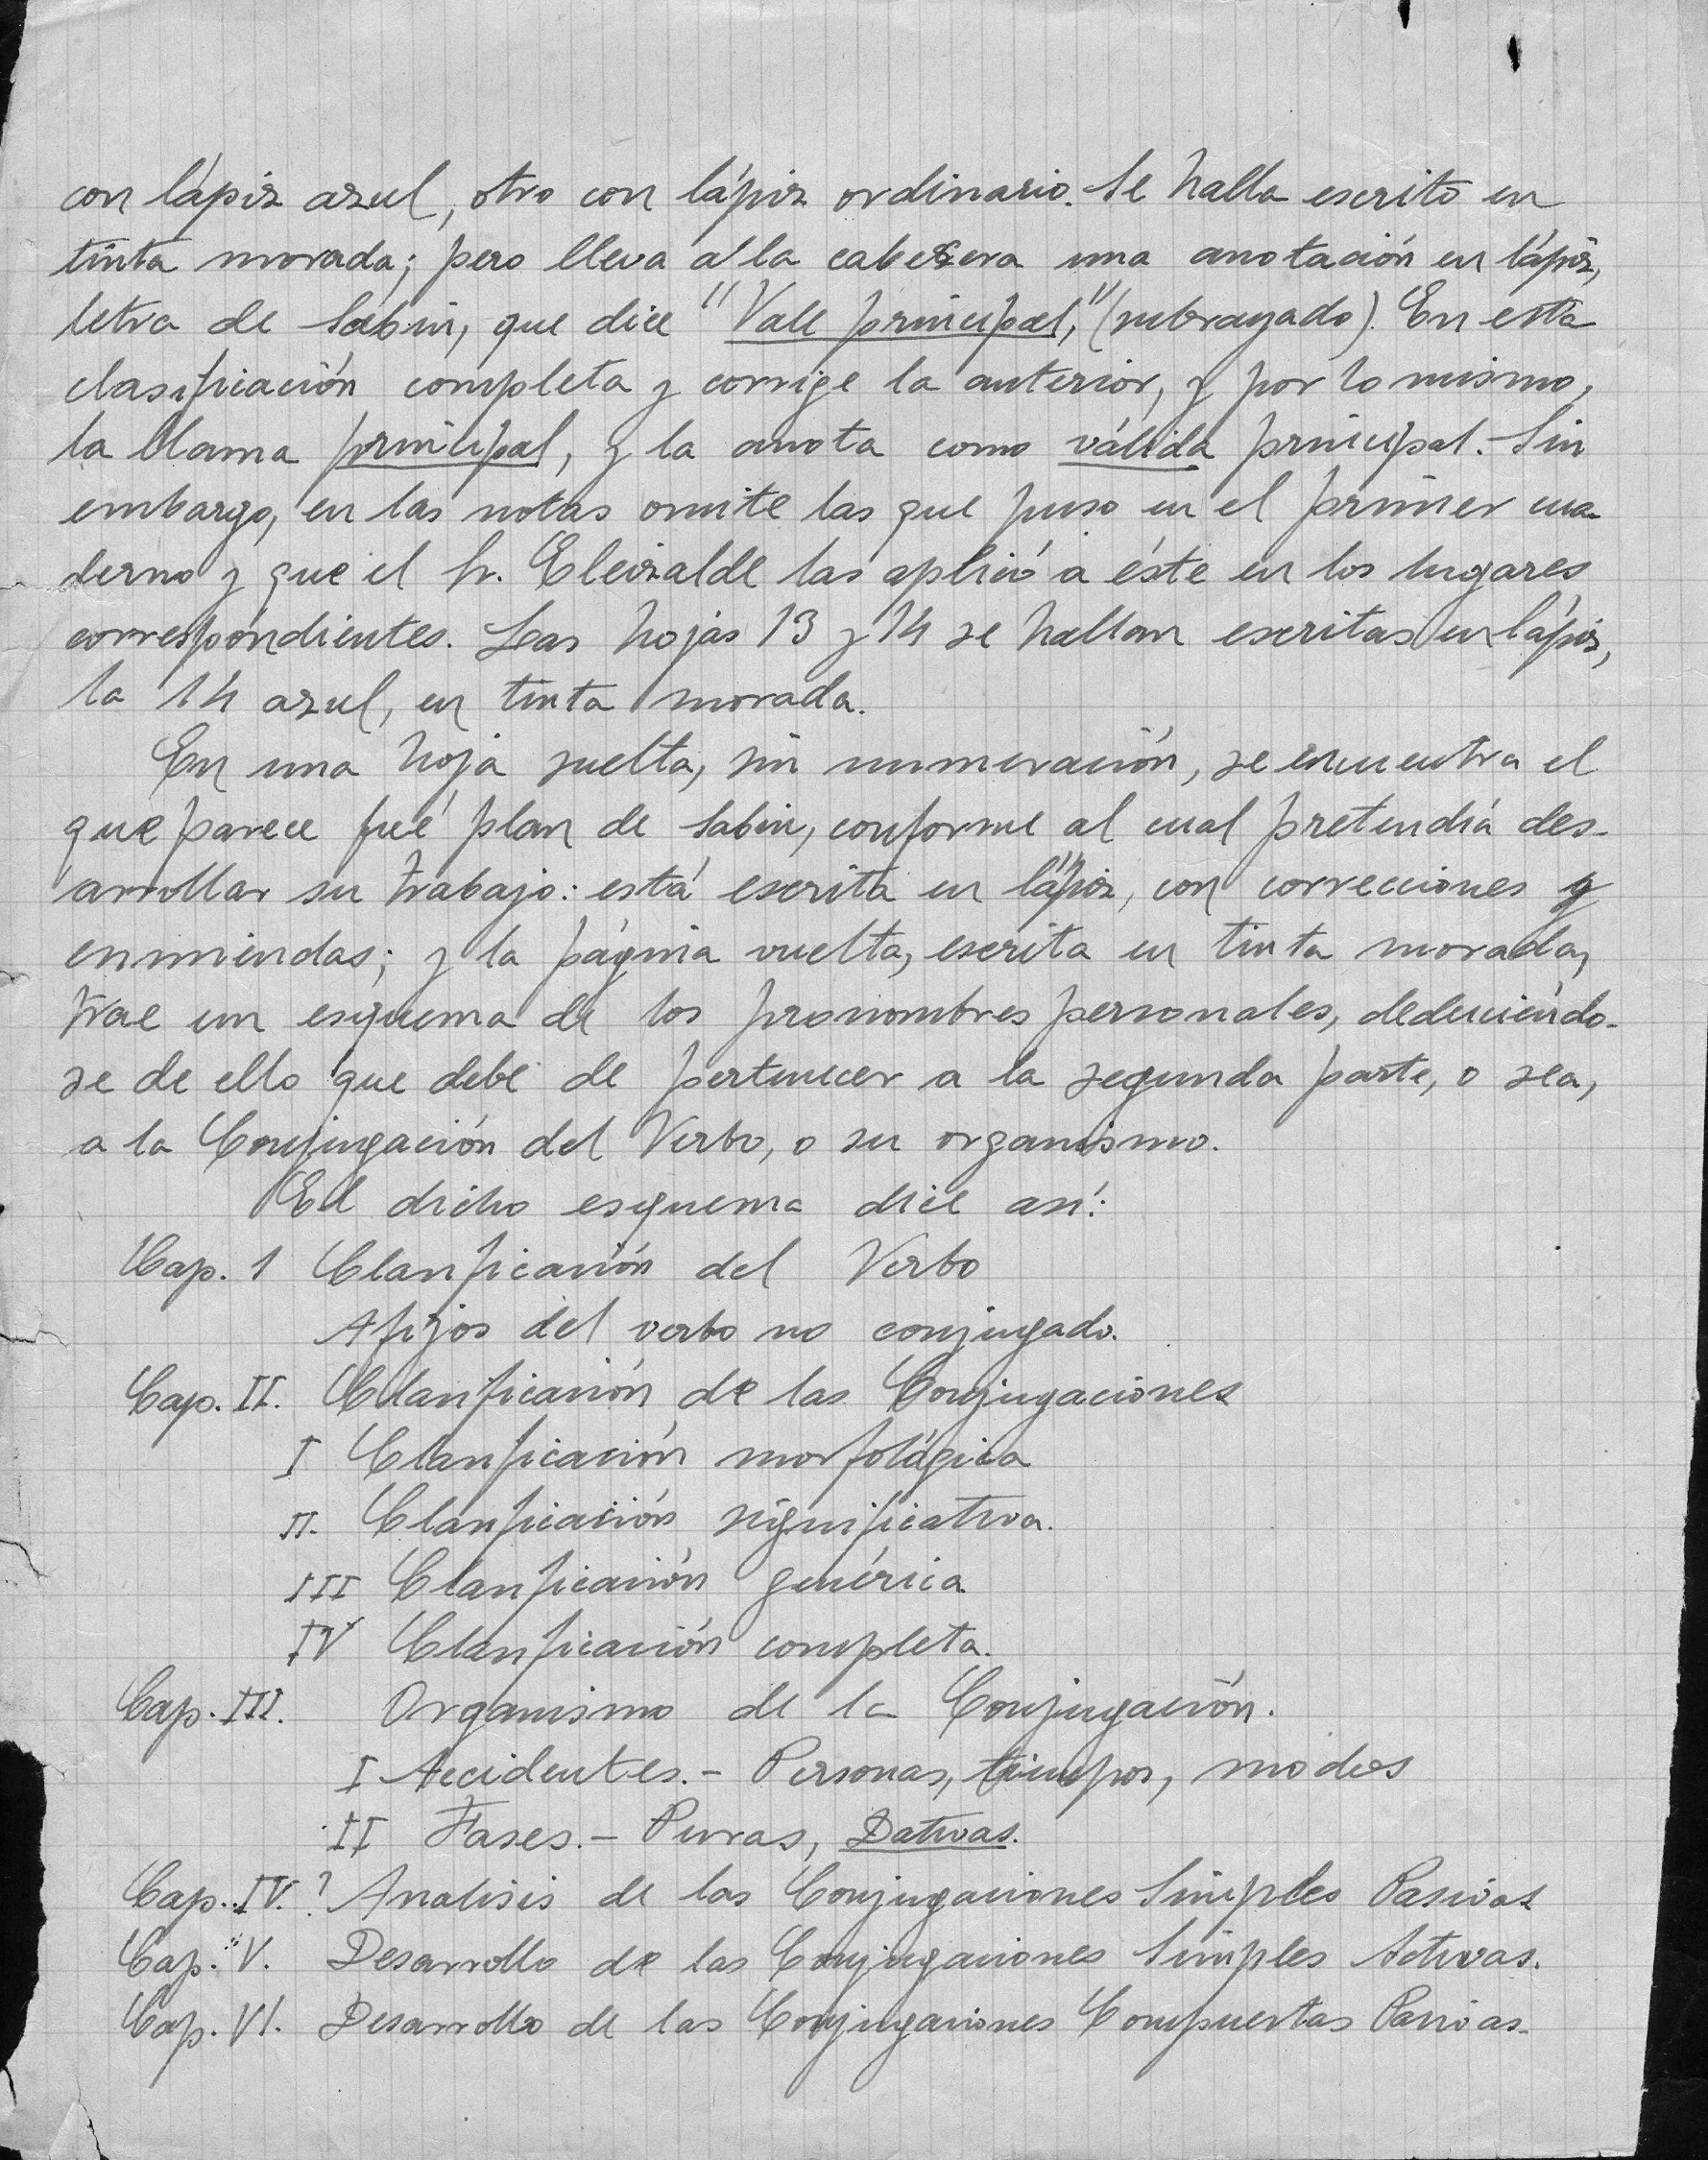 con lápiz azul, otro con lápiz ordinario. Se halla escrito en
tinta morada; pero lleva a la cabezera una anotación en lápiz,
letra de Sabin, que dice "Vale principal," (subrayado). En esta
clasificiación completa y corrige la anterior, y por lo mismo,
la llama principal, y la anota como válida principal. Sin
embargo, en las notas omite las que puso en el primer cua-
derno y que el Sr. Eleizalde las aplicó a éste en los lugares
correspondientes. Las hojas 13 y 14 se hallan escritas en lápiz,
la 14 azul, en tinta morada.
En una hoja suelta, sin numeración, se encuentra el
que parece fué plan de Sabin, conforme al cual pretendía des-
arrollar su trabajo: está escrita en lápiz, con correcciones y
enmiendas; y la página vuelta, escrita en tinta morada,
trae un esquema de los pronombres personales, deduciéndo-
se de ello que debe de pertenecer a la segunda parte, o sea,
a la Conjugación del Verbo, o su organismo.
El dicho esquema dice así:
Cap. 1 Clasificación del Verbo
Afijos del verbo no conjugado.
Cap. II. Clasificación de las Conjugaciones
I Clasificación morfológica
II. Clasificación significativa.
III Clasificación genérica
IV Clasificación completa.
Cap. III. Organismo de la Conjugación.
I Accidentes.- Personas, tiempos, modos
II Fases.- Puras, Dativas.
Cap. IV. ? Analisis de las Conjugaciones Simples Pasivas
Cap. V. Desarrollo de las Conjugaciones Simples Activas.
Cap. VI. Desarrollo de las Conjugaciones Compuestas Pasivas-